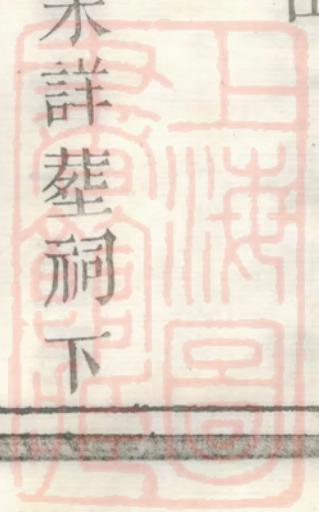 詳塟祠下
上海圖
書館藏